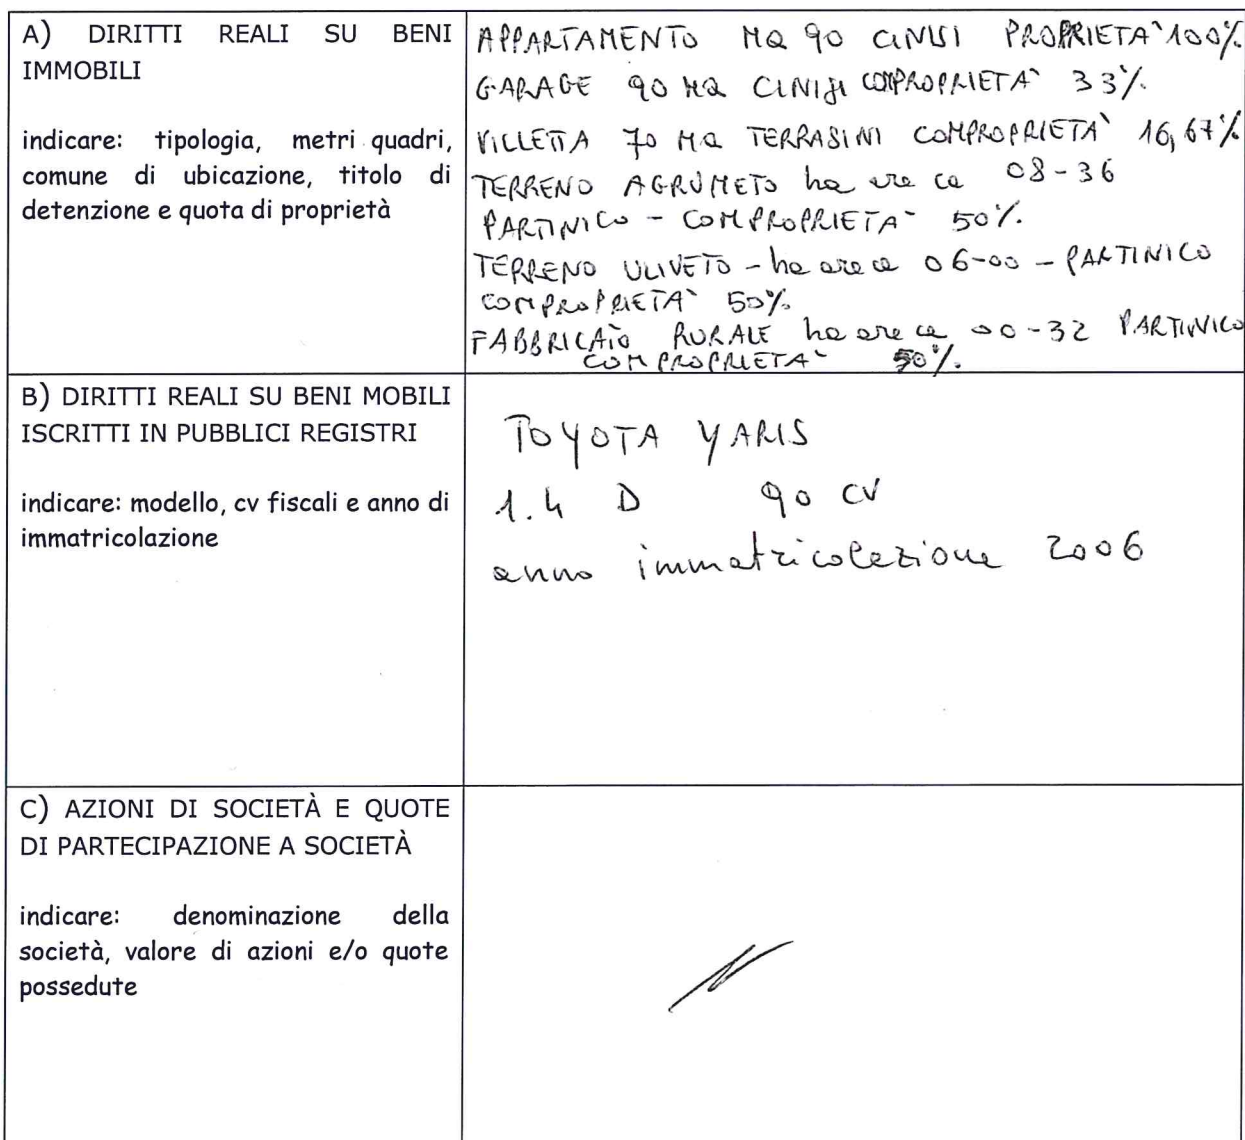 A) DIRITTI REALI SU BENI
IMMOBILI
indicare: tipologia, metri quadri,
comune di ubicazione, titolo di
detenzione e quota di proprietà
APPARTAMENTO MQ 90 CINISI PROPRIETA' 100%
GARAGE 90 MQ CINISI COMPROPRIETA' 33%
VILLETTA 70 MQ TERRASINI COMPROPRIETA' 16,67%
TERRENO AGRUMETO ha are ca 08-36
PARTINICO - COMPROPRIETA' 50%
TERRENO ULIVETO - ha are ca 06-00 - PARTINICO
COMPROPRIETA' 50%
FABBRICATO RURALE ha are ca 00-32 PARTINICO
COMPROPRIETA' 50%.
B) DIRITTI REALI SU BENI MOBILI
ISCRITTI IN PUBBLICI REGISTRI
indicare: modello, cv fiscali e anno di
immatricolazione
TOYOTA YARIS
1.4 D 90 CV
anno immatricolazione 2006
C) AZIONI DI SOCIETÀ E QUOTE
DI PARTECIPAZIONE A SOCIETÀ
indicare: denominazione della
società, valore di azioni e/o quote
possedute